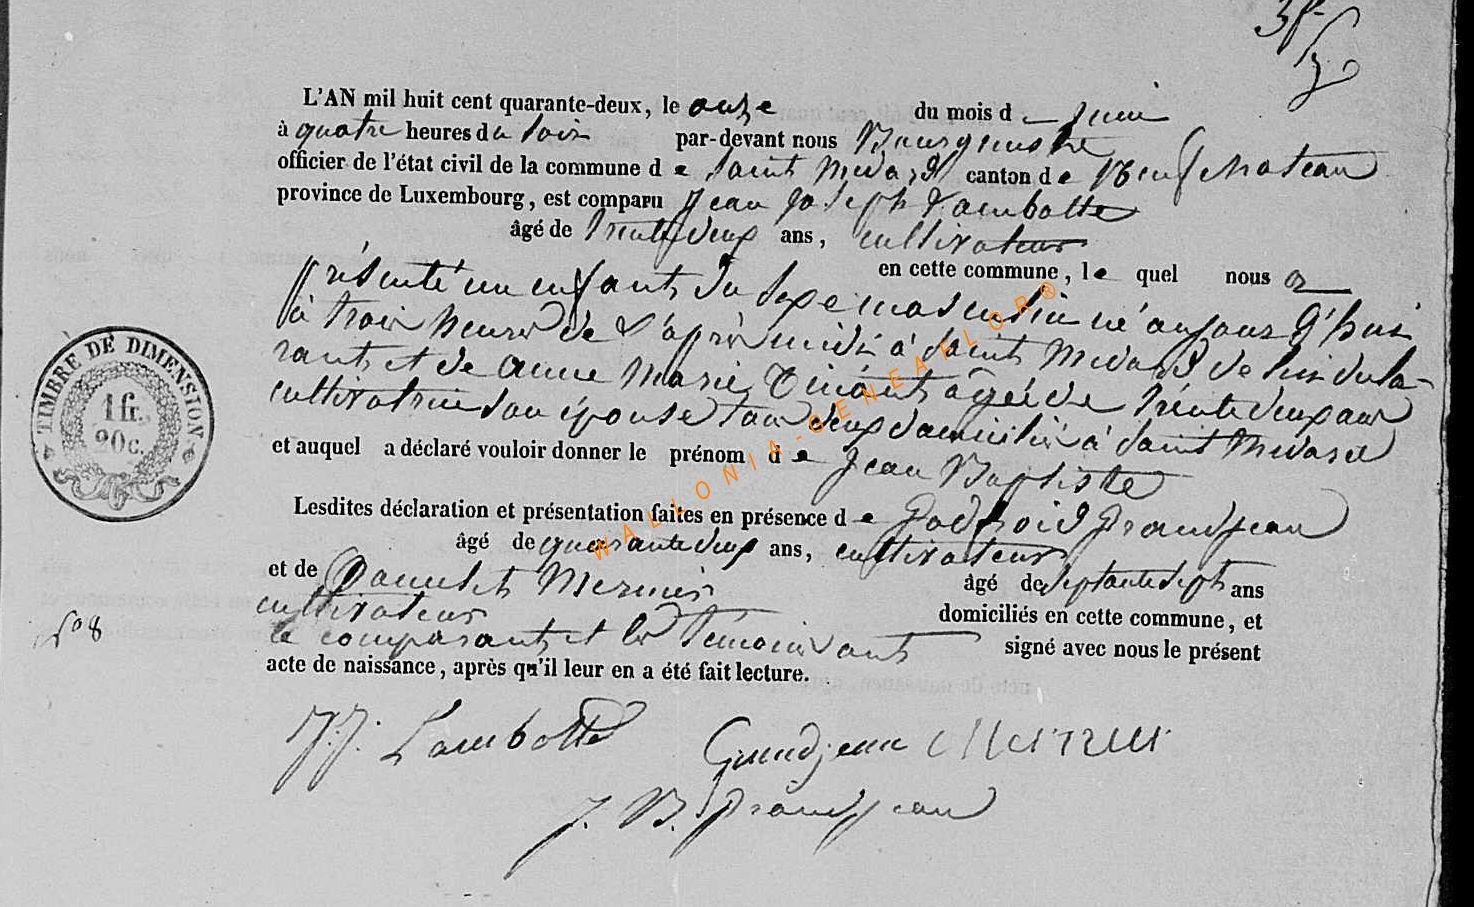 L'AN mil huit cent quarante-deux, le onze du mois de juin
à quatre heures du soir par-devant nous Bourgmestre
officier de l'état civil de la commune de Saint Medard canton de Neufchateau
province de Luxembourg, est comparu Jean Joseph Lambotte
âgé de trente deux ans, cultivateur
en cette commune, le quel nous a
présenté un enfant du sexe masculin né aujourd'hui
à trois heures de l'après midi à Saint Medard de lui decla-
rant et de Anne Marie Tinant âgée de trente deux ans
cultivatrice son épouse tous deux domiciliés à Saint Medard
et auquel a déclaré vouloir donner le prénom de Jean Baptiste
Lesdites déclaration et présentation faites en présence de Godfroid Grandjean
âgé de quarante deux ans, cultivateur
et de Mernier âgé de septante sept ans
cultivateur domiciliés en cette commune, et
le comparant et les témoins ont signé avec nous le présent
acte de naissance, après qu'il leur en a été fait lecture.
J.J. Lambotte Grandjean Mernier
J. B. Grandjean
TIMBRE DE DIMENSION
1 fr.
20c.
N° 8
WALLONIA-GENEAFLOR®